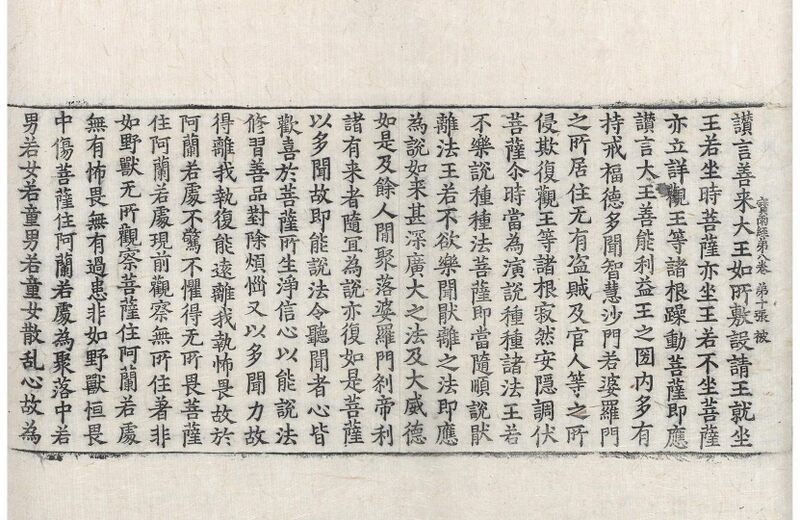 寶雨經第八卷 第十張 被
讃言善来大王如所敷設請王就坐
王若坐時菩薩亦坐王若不坐菩薩
亦立詳觀王等諸根躁動菩薩即應
讃言大王善能利益王之國内多有
持戒福德多聞智慧沙門若婆羅門
之所居住无有盗賊及官人等之所
侵欺復觀王等諸根寂然安隠調伏
菩薩尒時當為演說種種諸法王若
不樂說種種法菩薩即當隨順說猒
離法王若不欲樂聞猒離之法即應
為說如来甚深廣大之法及大威德
如是及餘人閒聚落婆羅門刹帝利
諸有来者隨冝為說亦復如是菩薩
以多聞故即能說法令聽聞者心皆
歡喜於菩薩所生淨信心以能說法
修習善品對除煩惱又以多聞力故
得離我執復能遠離我執怖畏故於
阿蘭若處不驚不懼得无所畏菩薩
住阿蘭若處現前觀察無所住著非
如野獸无所觀察菩薩住阿蘭若處
無有怖畏無有過患非如野獸恒畏
中傷菩薩住阿蘭若處為聚落中若
男若女若童男若童女散乱心故為